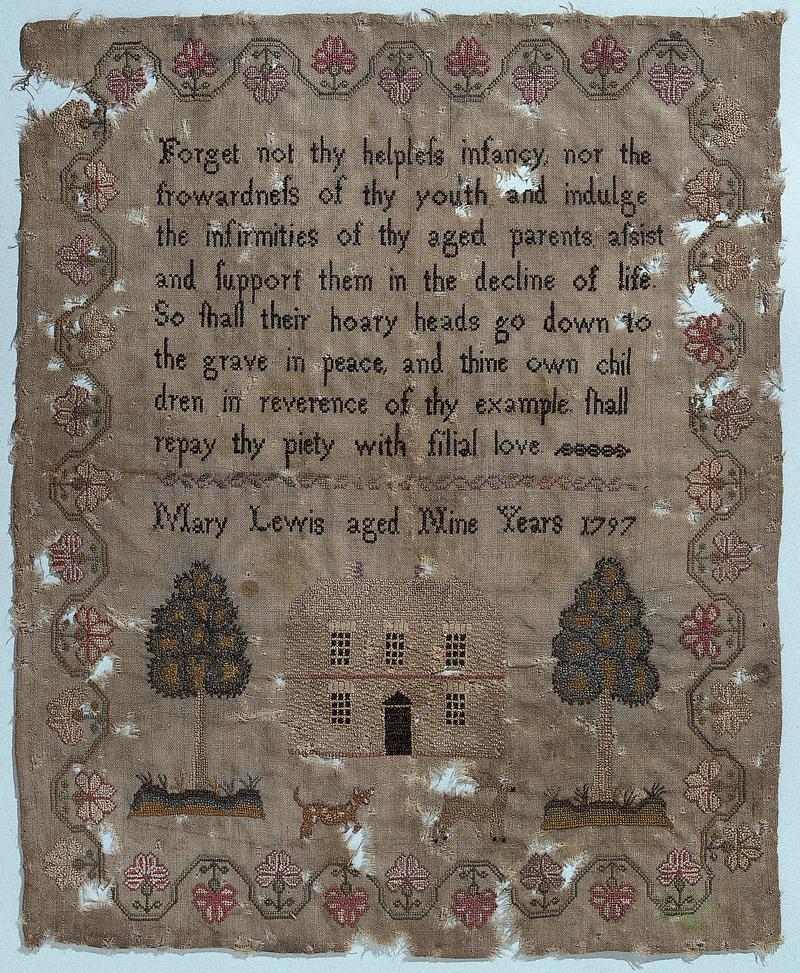 Forget not thy helpleſs infancy, nor the
frowardneſs of thy youth and indulge
the infirmities of thy aged parents aſsist
and ſupport them in the decline of life.
So ſhall their hoary heads go down to
the grave in peace, and thine own chil
dren in reverence of thy example ſhall
repay thy piety with filial love
Mary Lewis aged Nine Years 1797